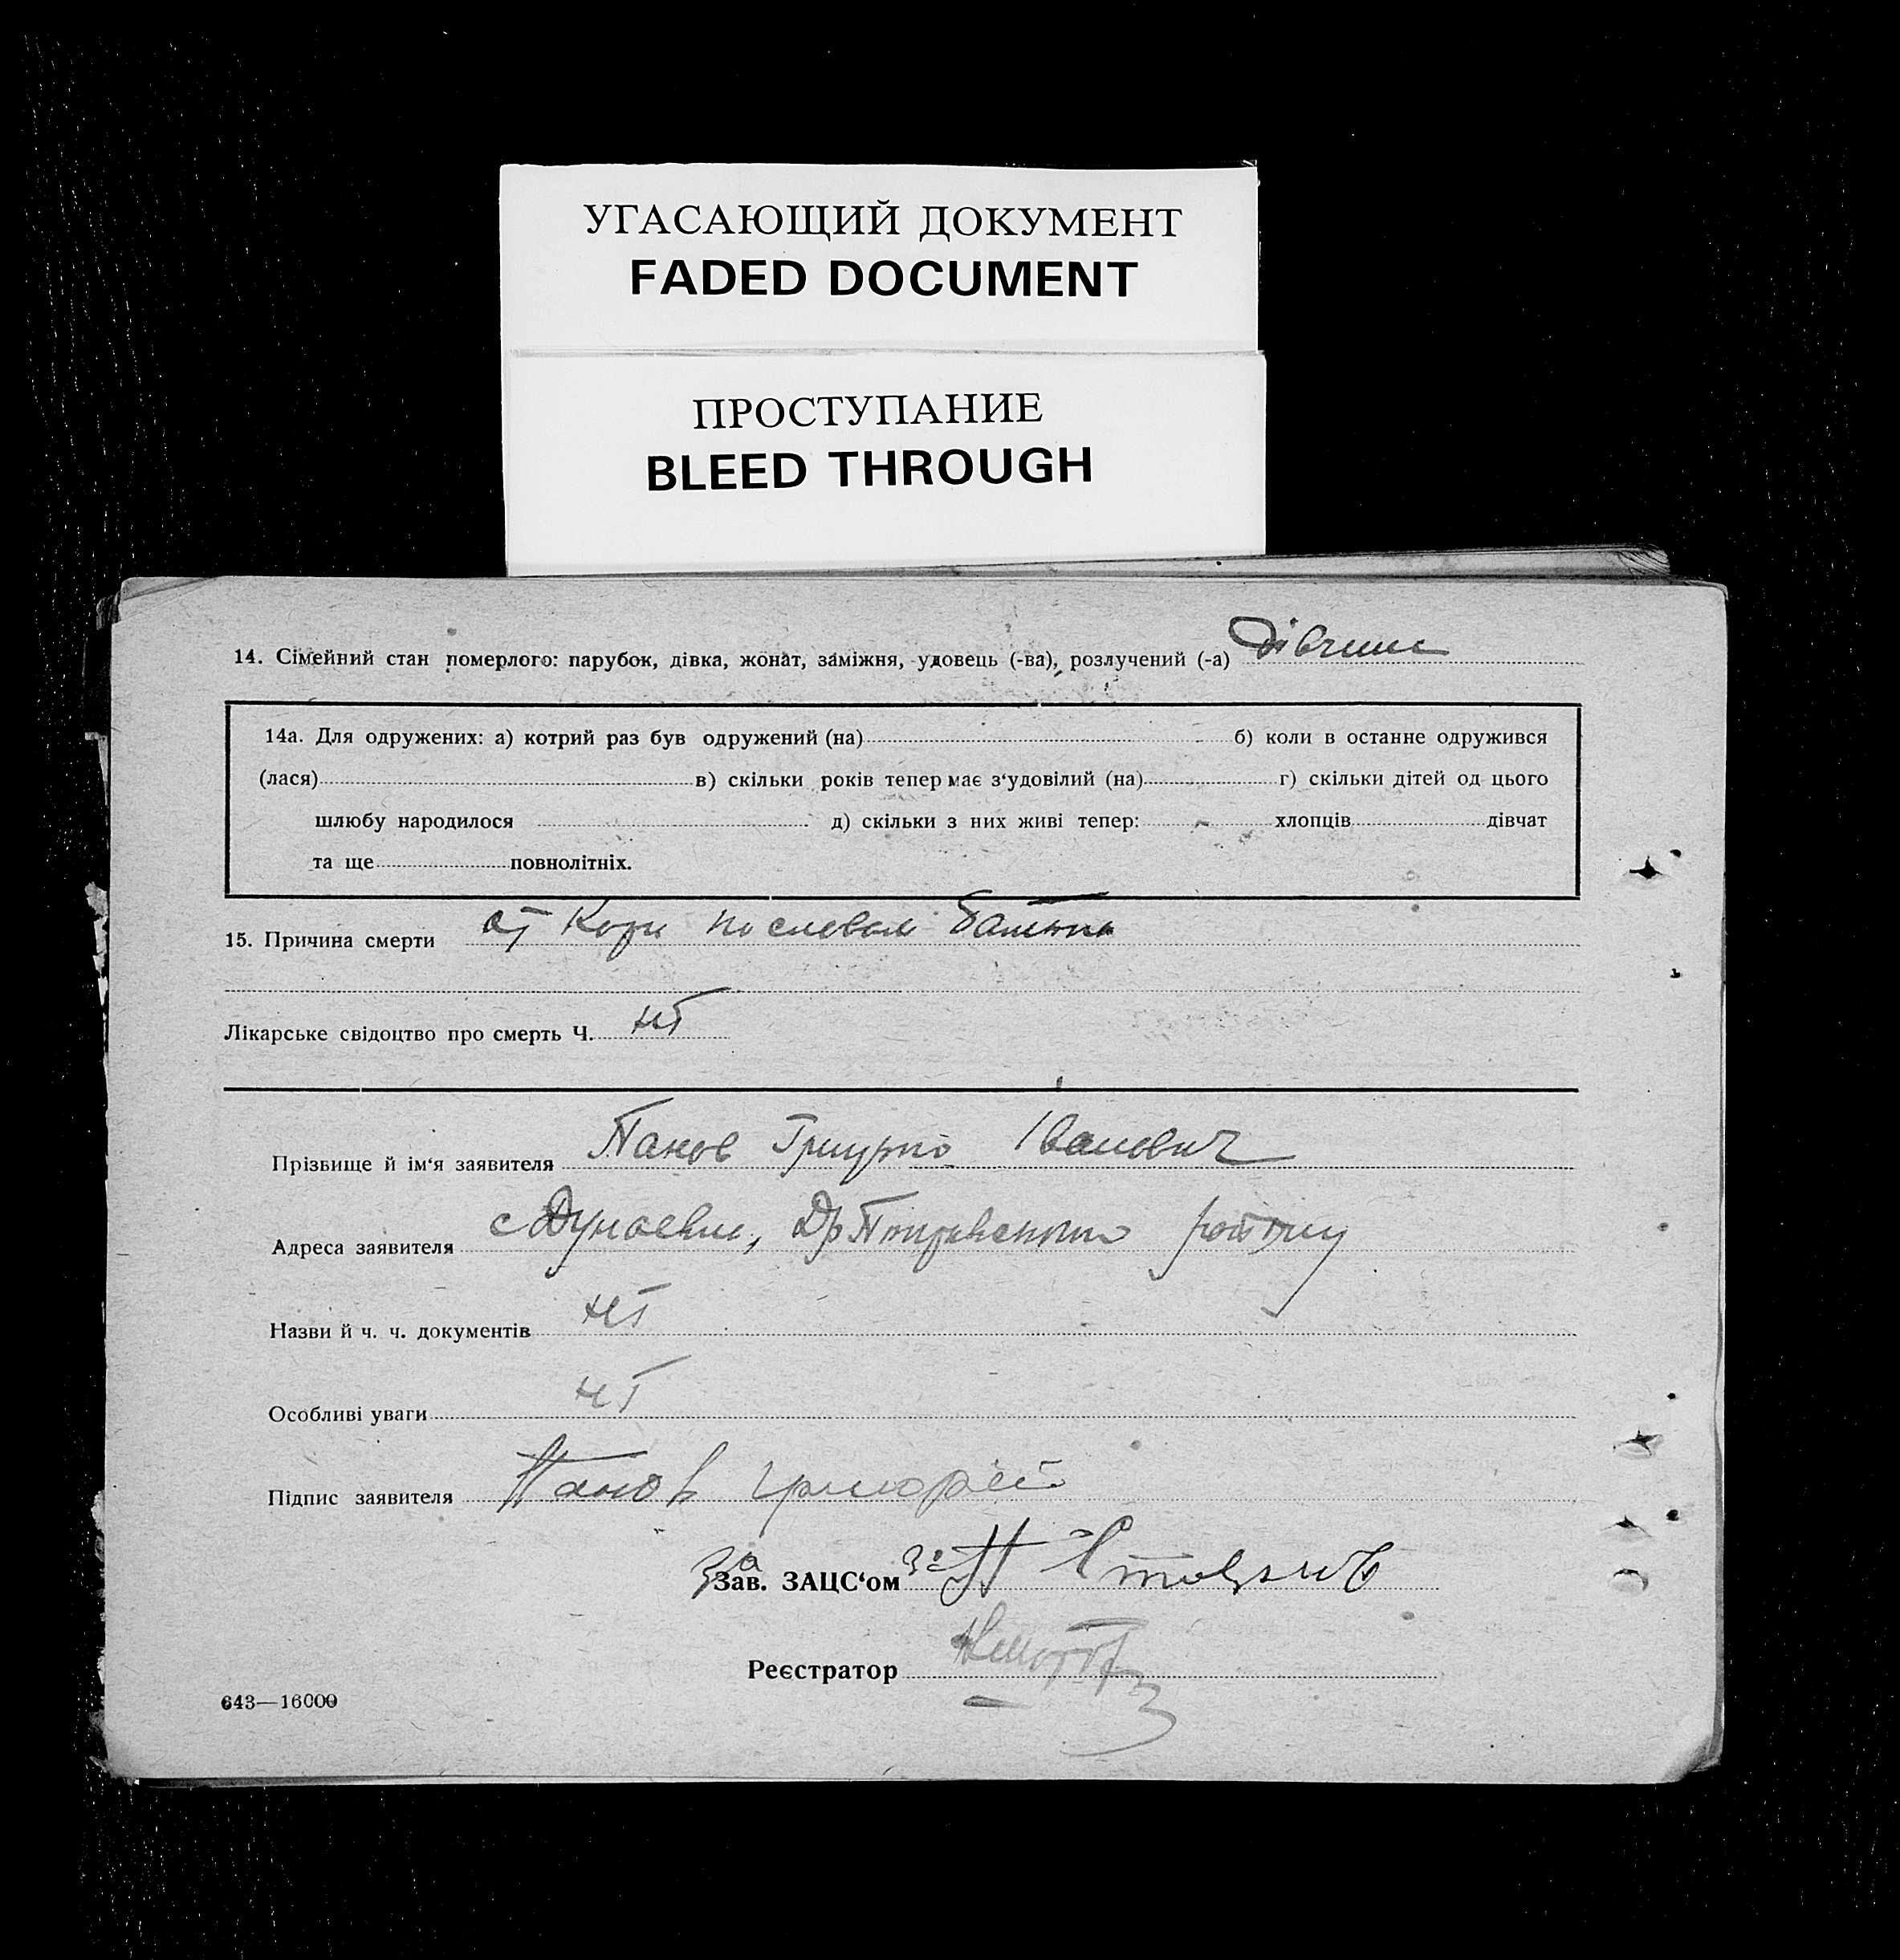 УГАСАЮЩИЙ ДОКУМЕНТ
FADED DOCUMENT
ПРОСТУПАНИЕ
BLEED THROUGH
14. Сімейний стан померлого: парубок, дівка, жонат, заміжня, удовець (-ва), розлучений (-а)
14а. Для одружених: а) котрий раз був одружений (на) б) коли в останне одружився
(лася) в) скільки років тепер має з‘удовілий (на) г) скільки дітей од цього
шлюбу народилося д) скільки з них живі тепер: хлопців дівчат
та ще повнолітніх.
15. Причина смерти от Кори
Лікарське свідоцтво про смерть Ч. нт
Прізвище й ім‘я заявителя Панов Грицько Іванович
Адреса заявителя с
Назви й ч. ч. документів нт
Особливі уваги нт
Підпис заявителя Панов Григорій
За Зав. ЗАЦС‘ом
Реєстратор
643—16000